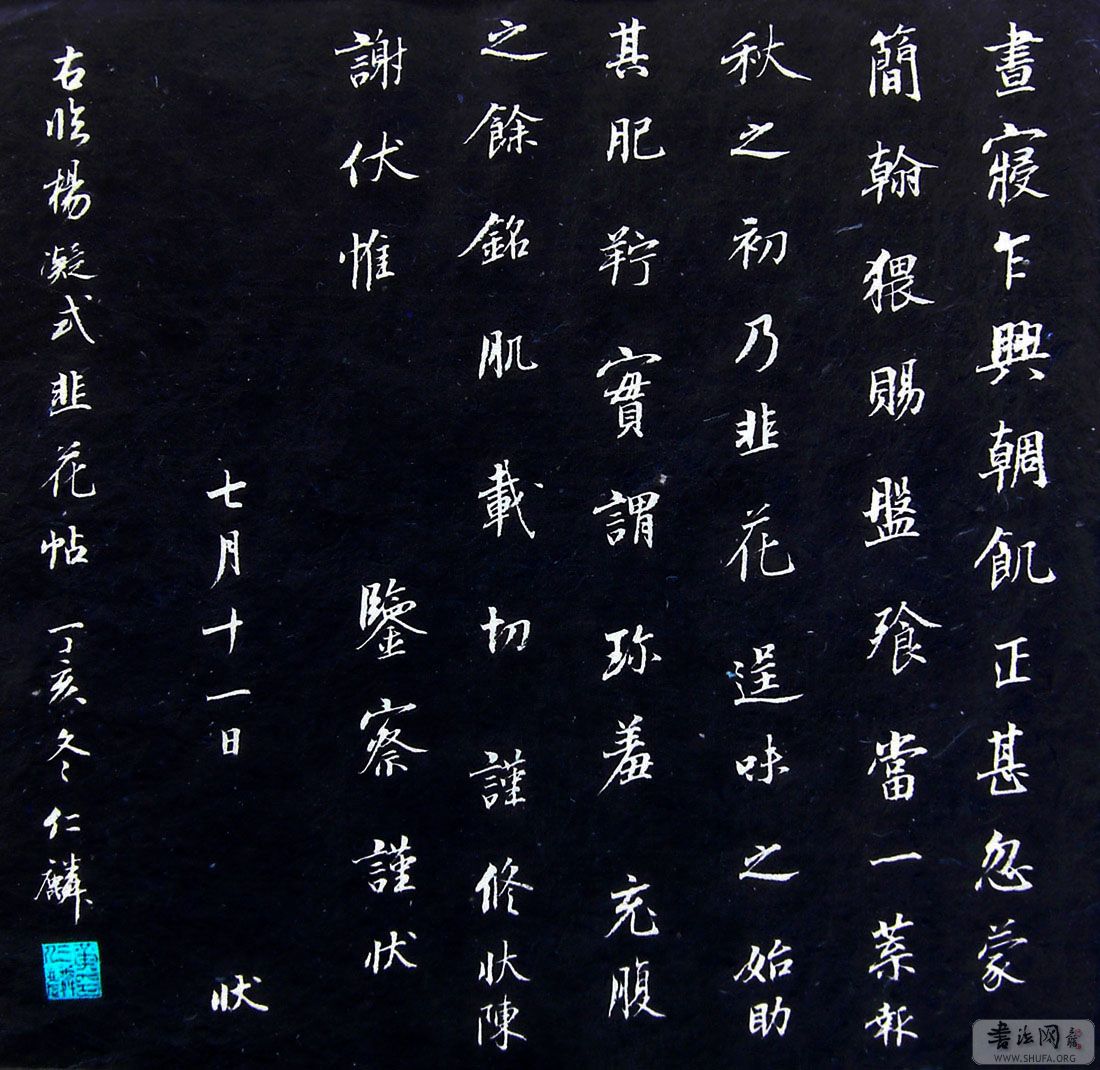 晝寢乍興朝飢正甚忽蒙
簡翰猥賜盤飧當一葉報
秋之初乃韭花逞味之始助
其肥羜實謂珍羞充腹
之餘銘肌載切謹修狀陳
謝伏惟鑒察謹狀
七月十一日狀
右臨楊凝式韭花帖丁亥冬仁麟
書法网
WWW.SHUFA.ORG